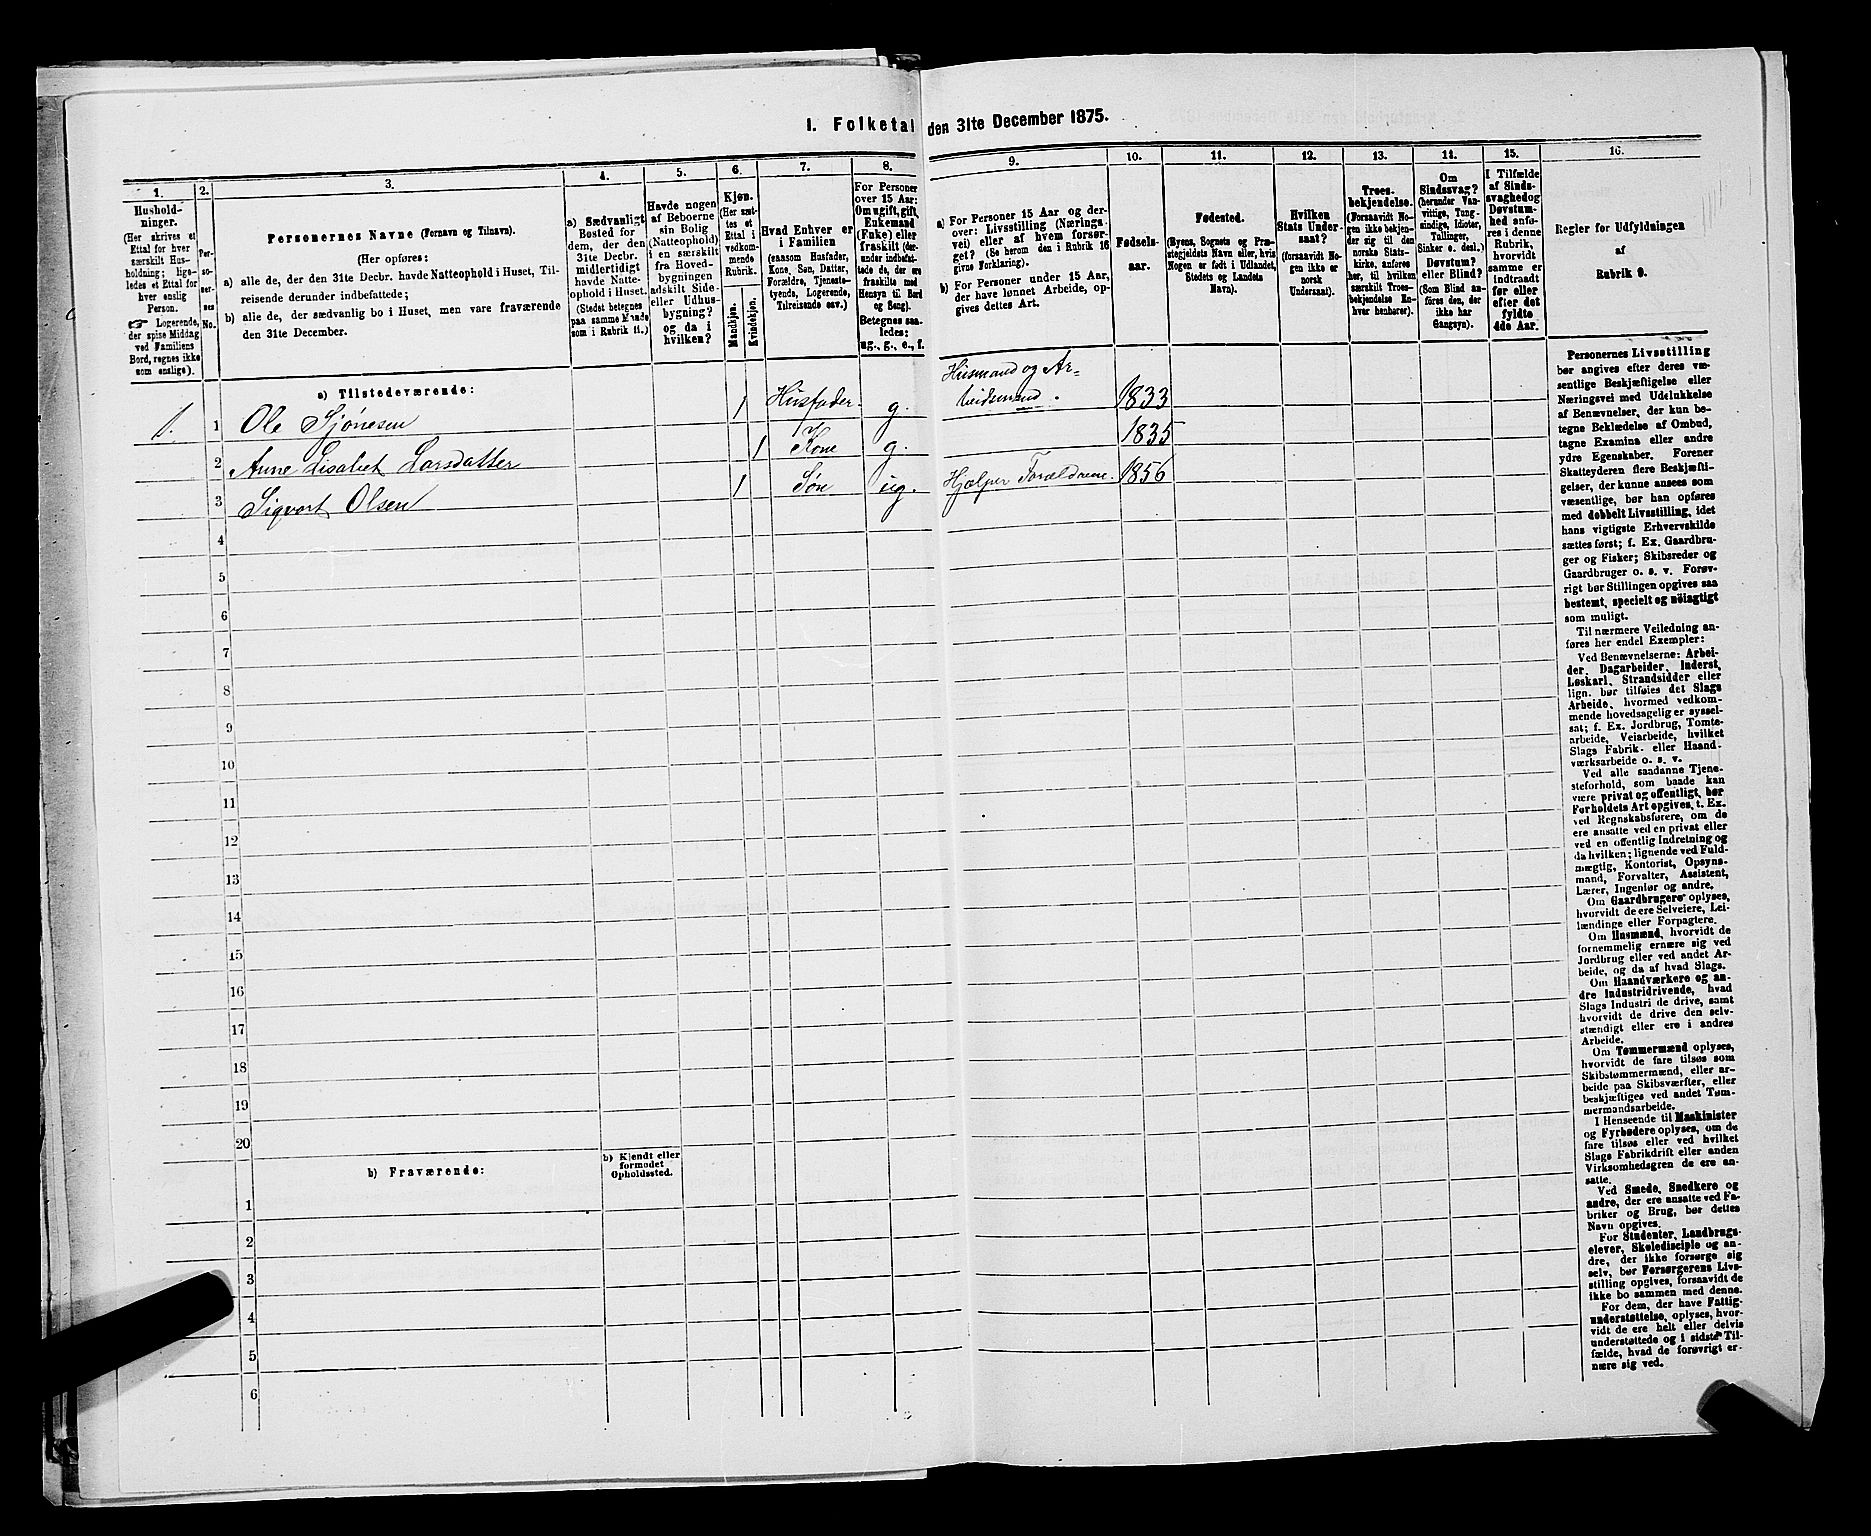 1. Folketal den 31te December 1875.
1.
Hushold-
ninger.
(Her skrives et
Ettal for hver
særskilt Hus-
holdning; lige-
ledes et Ettal for
hver enslig
Person.
☞ Logerende,
der spise Middag
ved Familiens
Bord, regnes ikke
som enslige).
2.
Per-
so-
ner-
nes
No.
3.
Personernes Navne (Fornavn og Tilnavn).
(Her opføres:
a) alle de, der den 31te Decbr. havde Natteophold i Huset, Til-
reisende derunder indbefattede;
b) alle de, der sædvanlig bo i Huset, men vare fraværende
den 31te December.
4.
a) Sædvanligt
Bosted for
dem, der den
31te Decbr.
midlertidigt
havde Natte-
ophold i Huset.
(Stedet betegnes
paa samme Maade
som i Rubrik 11.)
5.
Havde nogen
af Beboerne
sin Bolig
(Natteophold)
i en særskilt
fra Hoved-
bygningen
adskilt Side-
eller Udhus-
bygning?
og da i
hvilken?
6.
Kjøn.
(Her sæt-
tes et
Ettal i
vedkom-
mende
Rubrik.
Mandkjøn.
Kvindekjøn.
7.
Hvad Enhver er
i Familien
(saasom Husfader,
Kone, Søn, Datter,
Forældre, Tjeneste-
tyende, Logerende,
Tilreisende osv.)
8.
For Personer
over 15 Aar:
Om ugift, gift,
Enkemand
(Enke) eller
fraskilt (der-
under indbefat-
tede de, der ere
fraskilte med
Hensyn til Bord
og Seng).
Betegnes saa-
ledes:
ug., g., e., f.
9.
a) For Personer 15 Aar og der-
over: Livsstilling (Nærings-
vei) eller af hvem forsør-
get? (Se herom den i Rubrik 16
givne Forklaring).
b) For Personer under 15 Aar,
der have lønnet Arbeide, op-
gives dettes Art.
10.
Fødsels-
aar.
11.
Fødested.
(Byens, Sognets og Præ-
stegjeldets Navn eller, hvis
Nogen er født i Udlandet,
Stedets og Landets
Navn).
12.
Hvilken
Stats Under-
saat?
(forsaavidt No-
gen ikke er
norsk
Undersaat).
13.
Troes-
bekjendelse.
(Forsaavidt No-
gen ikke bekjen-
der sig til den
norske Stats-
kirke, anføres
her, til hvilken
særskilt Troes-
bekjendelse En-
hver henhører).
14.
Om
Sindssvag?
(herunder Van-
vittige, Tung-
sindige, Idioter,
Tullinger,
Sinker o. desl.)
Døvstum?
eller Blind?
(Som Blind an-
føres den, der
ikke har
Gangsyn).
15.
I Tilfælde
af Sinds-
svaghed og
Døvstum-
hed anfø-
res i denne
Rubrik,
hvorvidt
samme er
indtraadt
før eller
efter det
fyldte
4de Aar.
16.
Regler for Udfyldningen
af
Rubrik 9.
a) Tilstedeværende:
1. 1 Ole Sjønesen 1 Husfader. g. Husmand og Ar=
beidsmand. 1833
2 Anne Lisabet Larsdatter 1 Kone g. 1835
3 Sigvart Olsen 1 Søn ug. Hjælper Forældrene. 1856
4
5
6
7
8
9
10
11
12
13
14
15
16
17
18
19
20
b) Fraværende:
b) Kjendt eller
formodet
Opholdssted.
1
2
3
4
5
6
Personernes Livsstilling
bør angives efter deres væ-
sentlige Beskjæftigelse eller
Næringsvei med Udelukkelse
af Benævnelser, der kun be-
tegne Beklædelse af Ombud,
tagne Examina eller andre
ydre Egenskaber. Forener
Skatteyderen flere Beskjæfti-
gelser, der kunne ansees som
væsentlige, bør han opføres
med dobbelt Livsstilling, idet
hans vigtigste Erhvervskilde
sættes først; f. Ex. Gaardbru-
ger og Fisker; Skibsreder og
Gaardbruger o. s. v. Forøv-
rigt bør Stillingen opgives saa
bestemt, specielt og nöiagtigt
som muligt.
Til nærmere Veiledning an-
føres her endel Exempler:
Ved Benævnelserne: Arbei-
der, Dagarbeider, Inderst,
Løskarl, Strandsidder eller
lign. bør tilføies det Slags
Arbeide, hvormed vedkom-
mende hovedsagelig er syssel-
sat; f. Ex. Jordbrug, Tomte-
arbeide, Veiarbeide, hvilket
Slags Fabrik- eller Haand-
værksarbeide o. s. v.
Ved alle saadanne Tjene-
steforhold, som baade kan
være privat og offentligt, bør
Forholdets Art opgives, t. Ex.
ved Regnskabsførere, om de
ere ansatte ved en privat eller
ved en offentlig Indretning og
da hvilken; lignende ved Fuld-
mægtig, Kontorist, Opsyns-
mand, Forvalter, Assistent,
Lærer, Ingeniør og andre.
Om Gaardbrugere oplyses,
hvorvidt de ere Selveiere, Lei-
lændinge eller Forpagtere.
Om Husmænd, hvorvidt de
fornemmelig ernære sig ved
Jordbrug eller ved andet Ar-
beide, og da af hvad Slags.
Om Haandværkere og an-
dre Industridrivende, hvad
Slags Industri de drive, samt
hvorvidt de drive den selv-
stændigt eller ere i andres
Arbeide.
Om Tømmermænd oplyses,
hvorvidt de fare tilsøs som
Skibstømmermænd, eller ar-
beide paa Skibsværfter, eller
beskjæftiges ved andet Tøm-
mermandsarbeide.
I Henseende til Maskinister
og Fyrbødere oplyses, om de
fare tilsøs eller ved hvilket
Slags Fabrikdrift eller anden
Virksomhedsgren de ere an-
satte.
Ved Smede, Snedkere og
andre, der ere ansatte ved Fa-
briker og Brug, bør dettes
Navn opgives.
For Studenter, Landbrugs-
elever, Skoledisciple og an-
dre, der ikke forsørge sig
selv, bør Forsørgerens Livs-
stilling opgives, forsaavidt de
ikke bo sammen med denne.
For dem, der have Fattig-
understøttelse, oplyses, hvor-
vidt de ere helt eller delvis
understøttede og i sidste Til-
fælde, hvad de forøvrigt er-
nære sig ved.